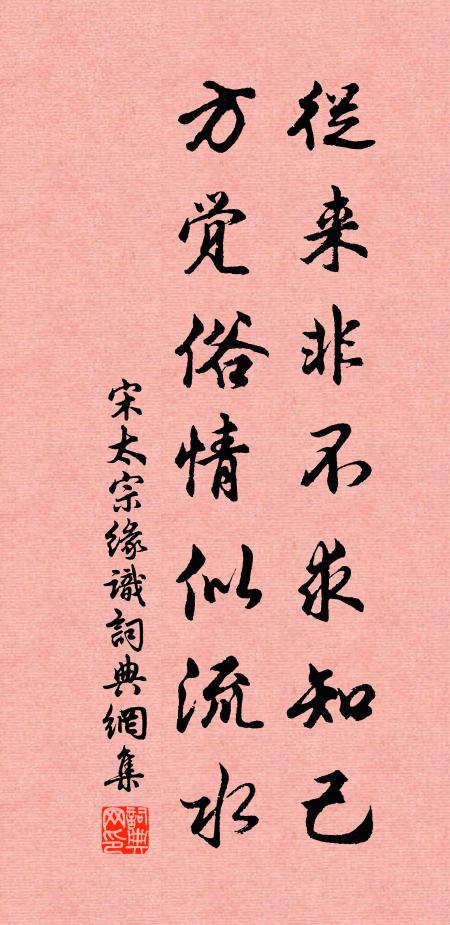 從来非不求知己
方觉俗情似流水
宋太宗緣識詞典網集
詞典网印